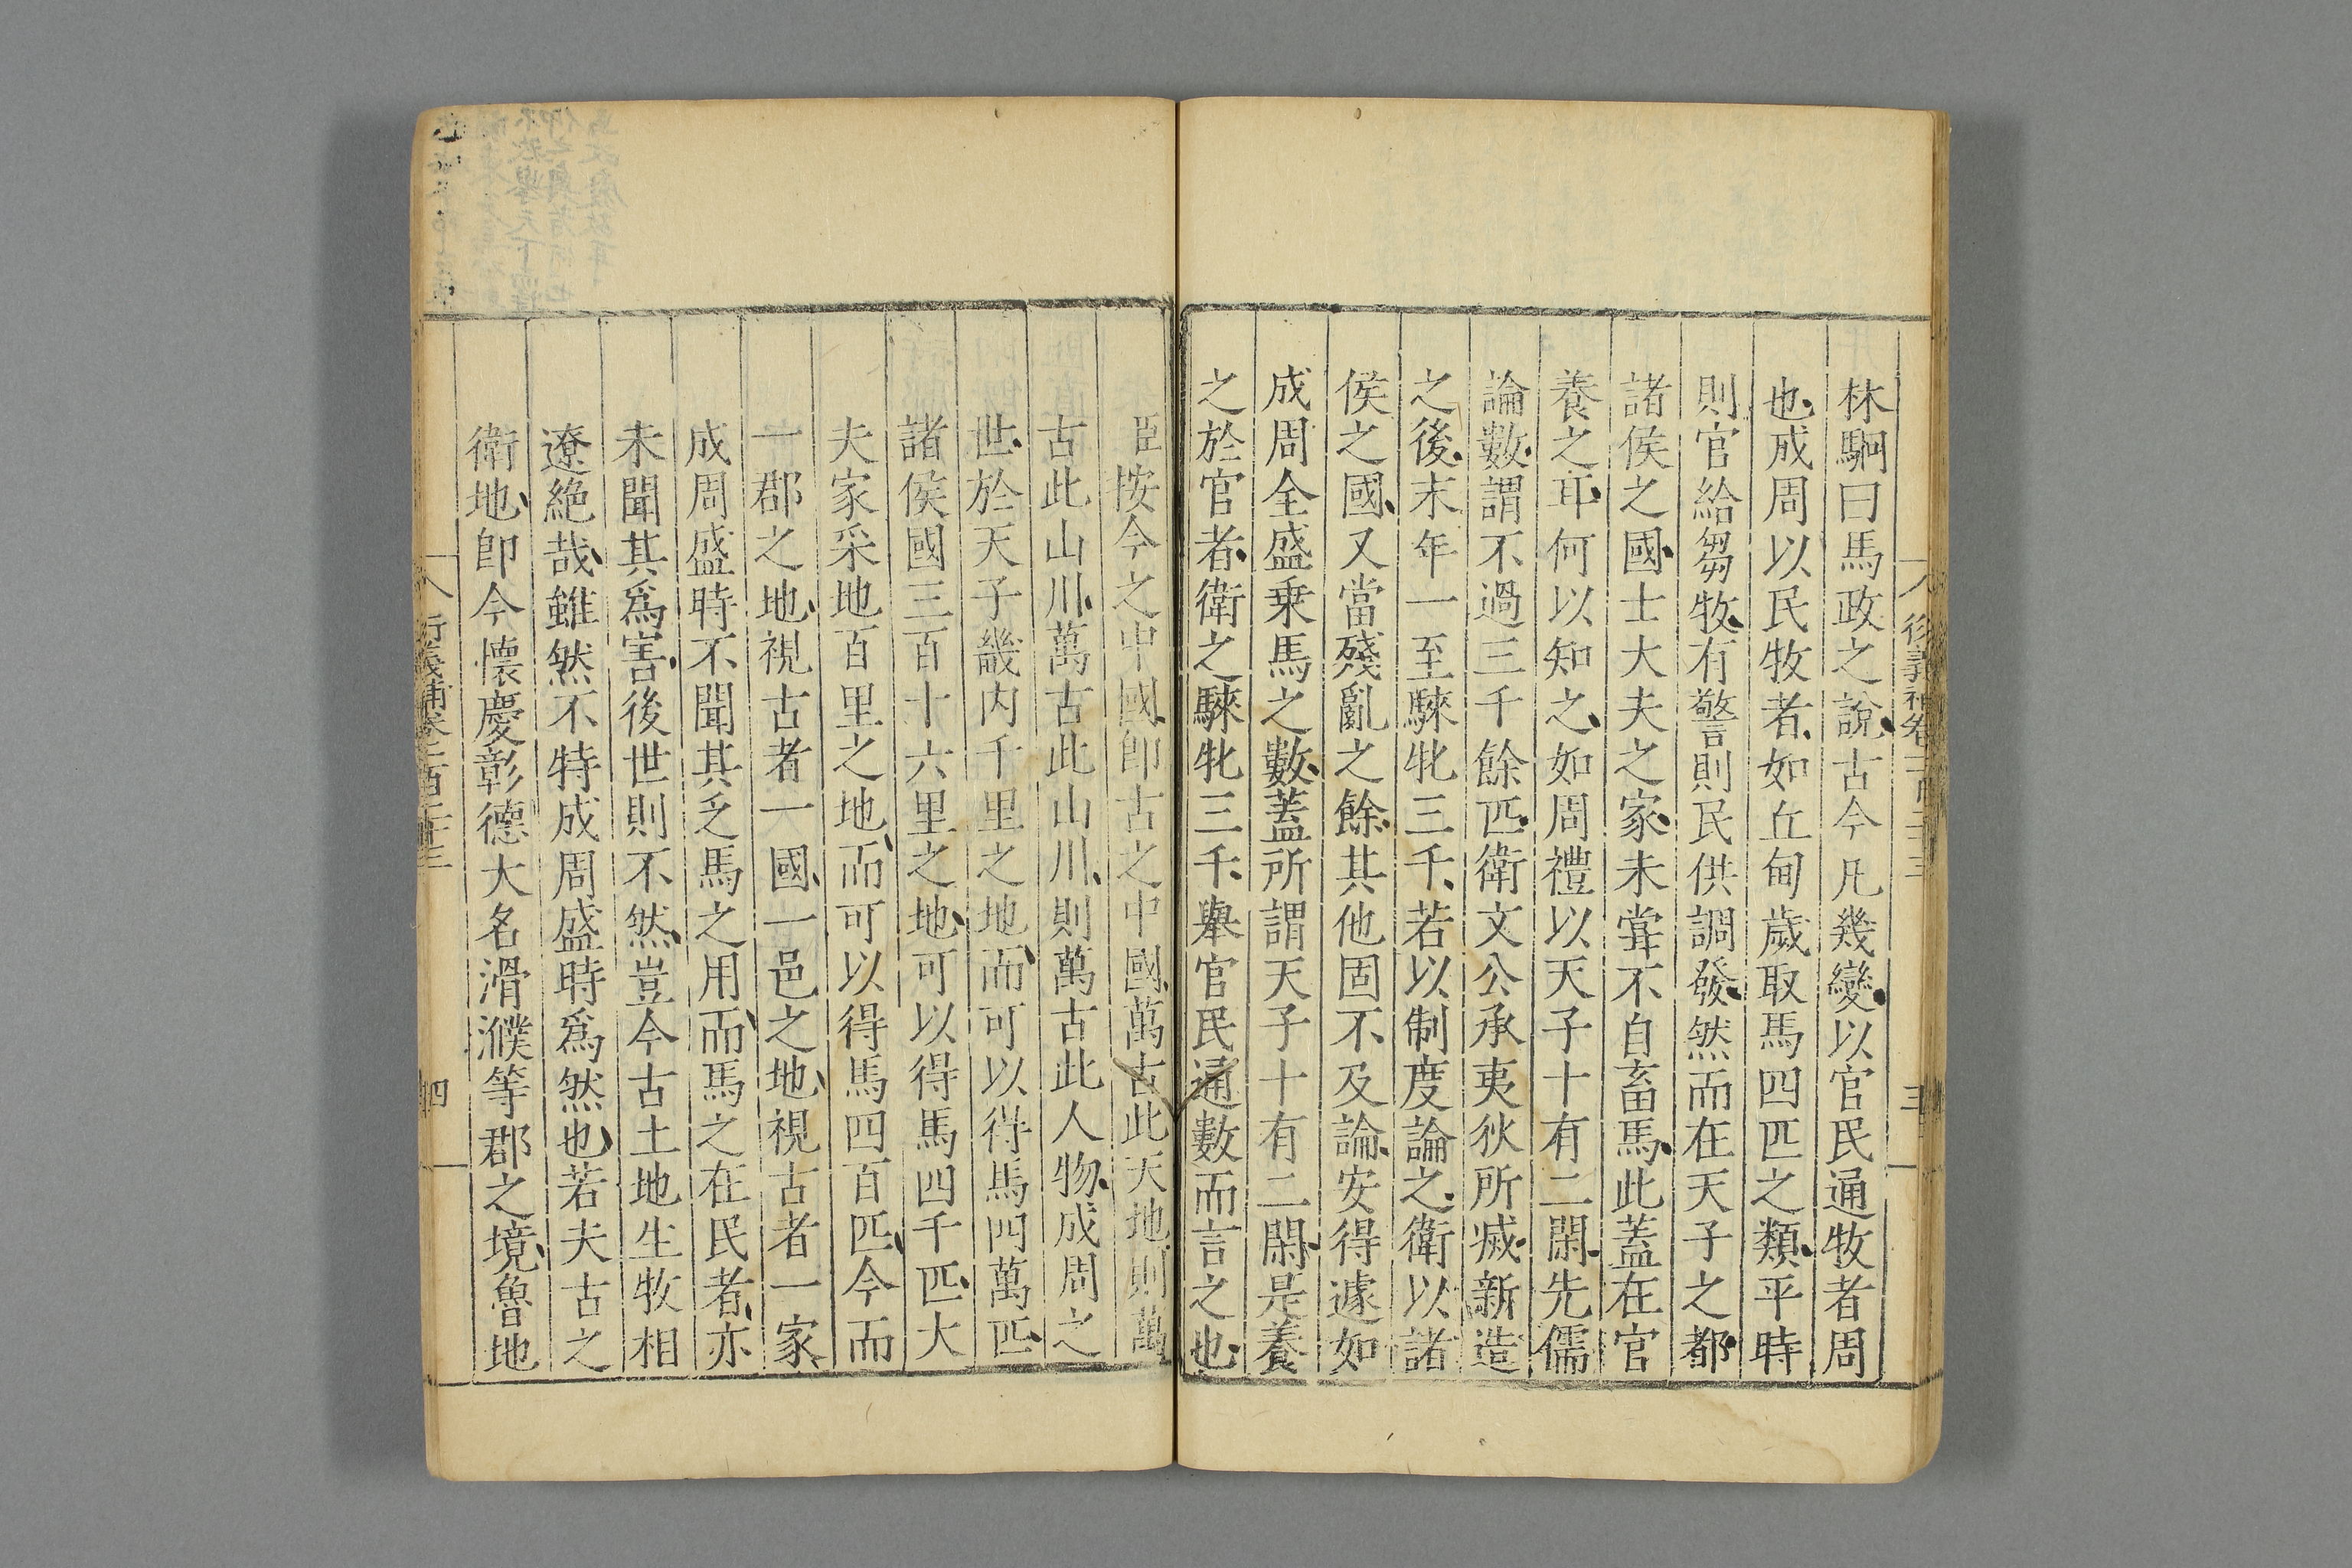 林駉曰馬政之說古今凡幾變以官民通牧者周
也成周以民牧者如丘甸歲取馬四匹之類平時
則官給芻牧有警則民供調發然而在天子之都
諸侯之國士大夫之家未甞不自畜馬此蓋在官
養之耳何以知之如周禮以天子十有二閑先儒
論數謂不過三千餘匹衛文公承夷狄所滅新造
之後末年一至騋牝三千若以制度論之衛以諸
侯之國又當殘亂之餘其他固不及論安得遽如
成周全盛乗馬之數蓋所謂天子十有二閑是養
之於官者衛之騋牝三千舉官民通數而言之也
臣按今之中國卽古之中國萬古此天地則萬
古此山川萬古此山川則萬古此人物成周之
世於天子畿内千里之地而可以得馬四萬匹
諸侯國三百十六里之地可以得馬四千匹大
夫家采地百里之地而可以得馬四百匹今而
一郡之地視古者一國一邑之地視古者一家
成周盛時不聞其乏馬之用而馬之在民者亦
未聞其爲害後世則不然豈今古土地生牧相
遼絶哉雖然不特成周盛時爲然也若夫古之
衛地卽今懷慶彰德大名滑濮等郡之境魯地
衍義補卷一百二十三
四